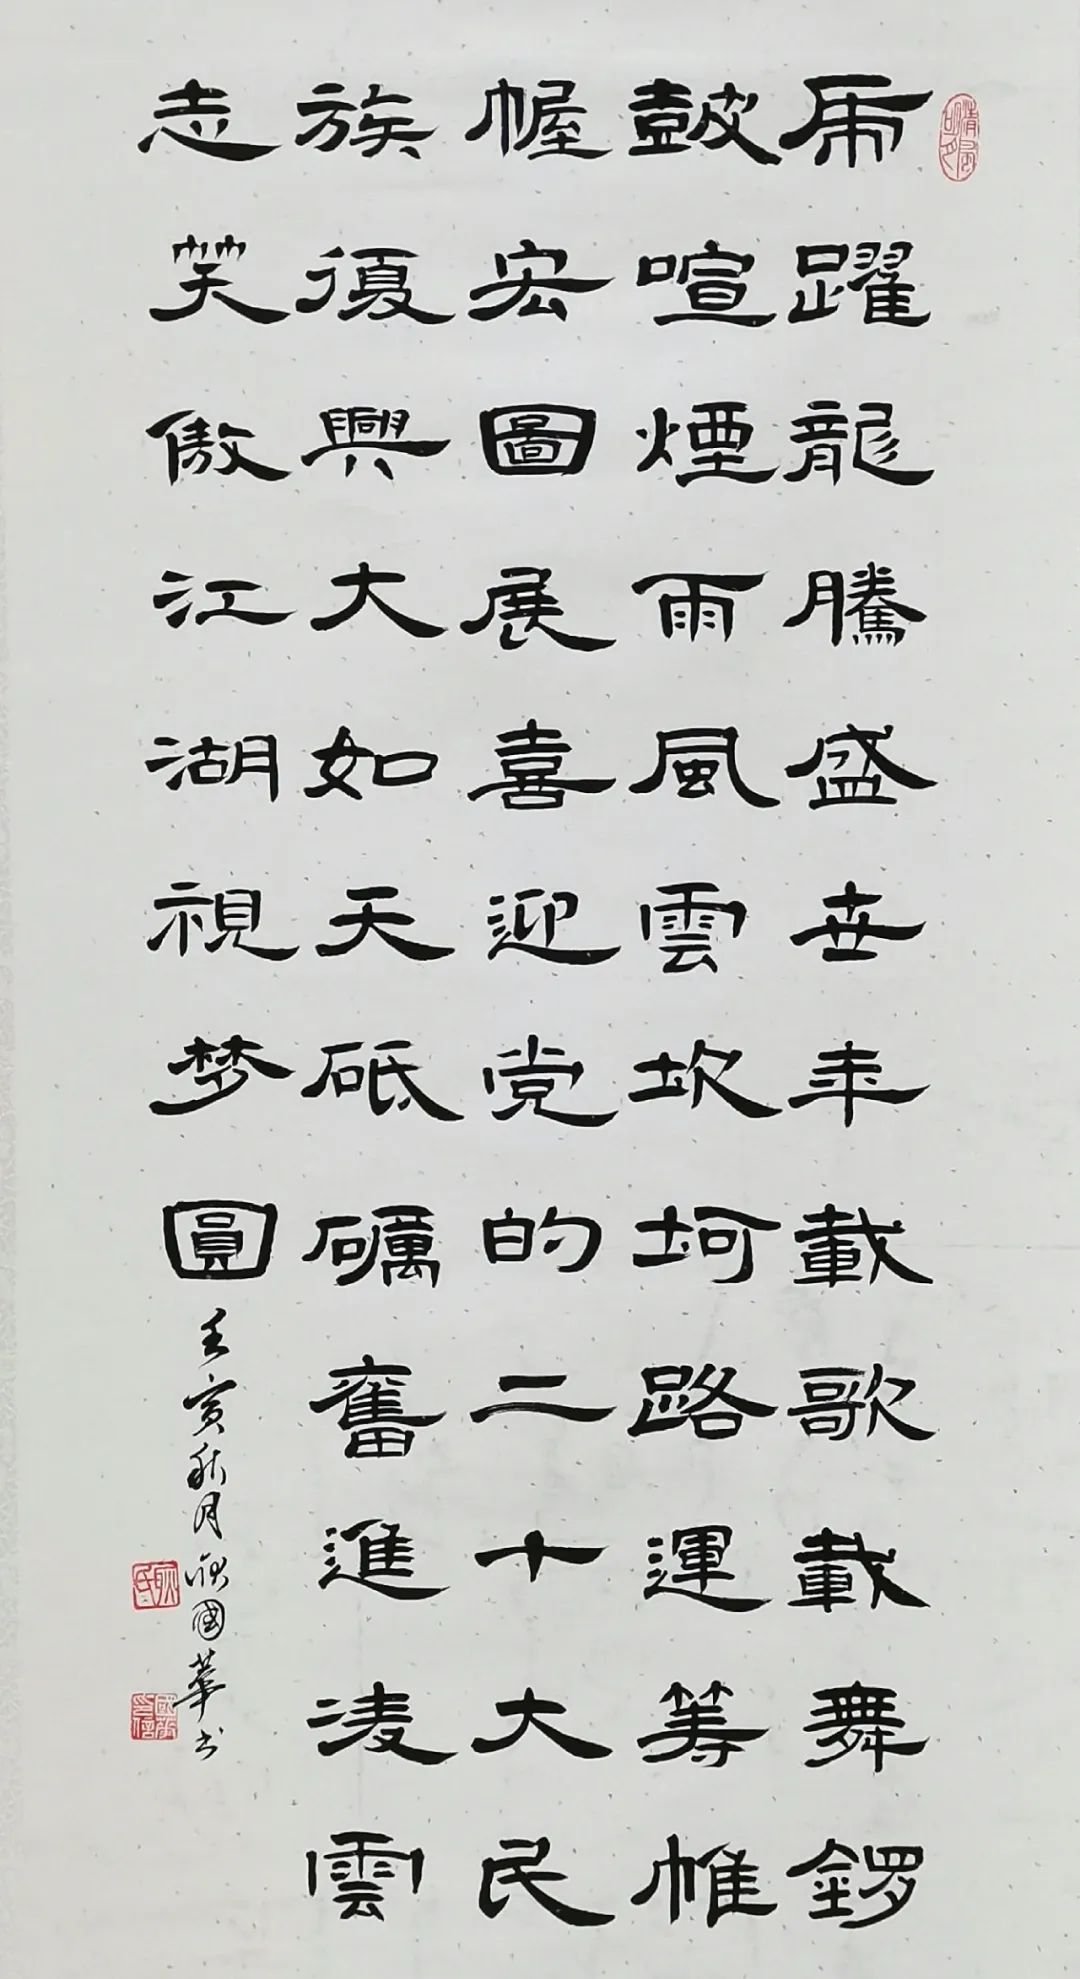 虎躍龍騰盛世年載歌載舞鑼
鼓喧煙雨風雲坎坷路運筹帷
幄宏圖展喜迎党的二十大民
族復興大如天砥礪奮進凌雲
志笑傲江湖視梦圓
壬寅秋月耿國華书
耿氏